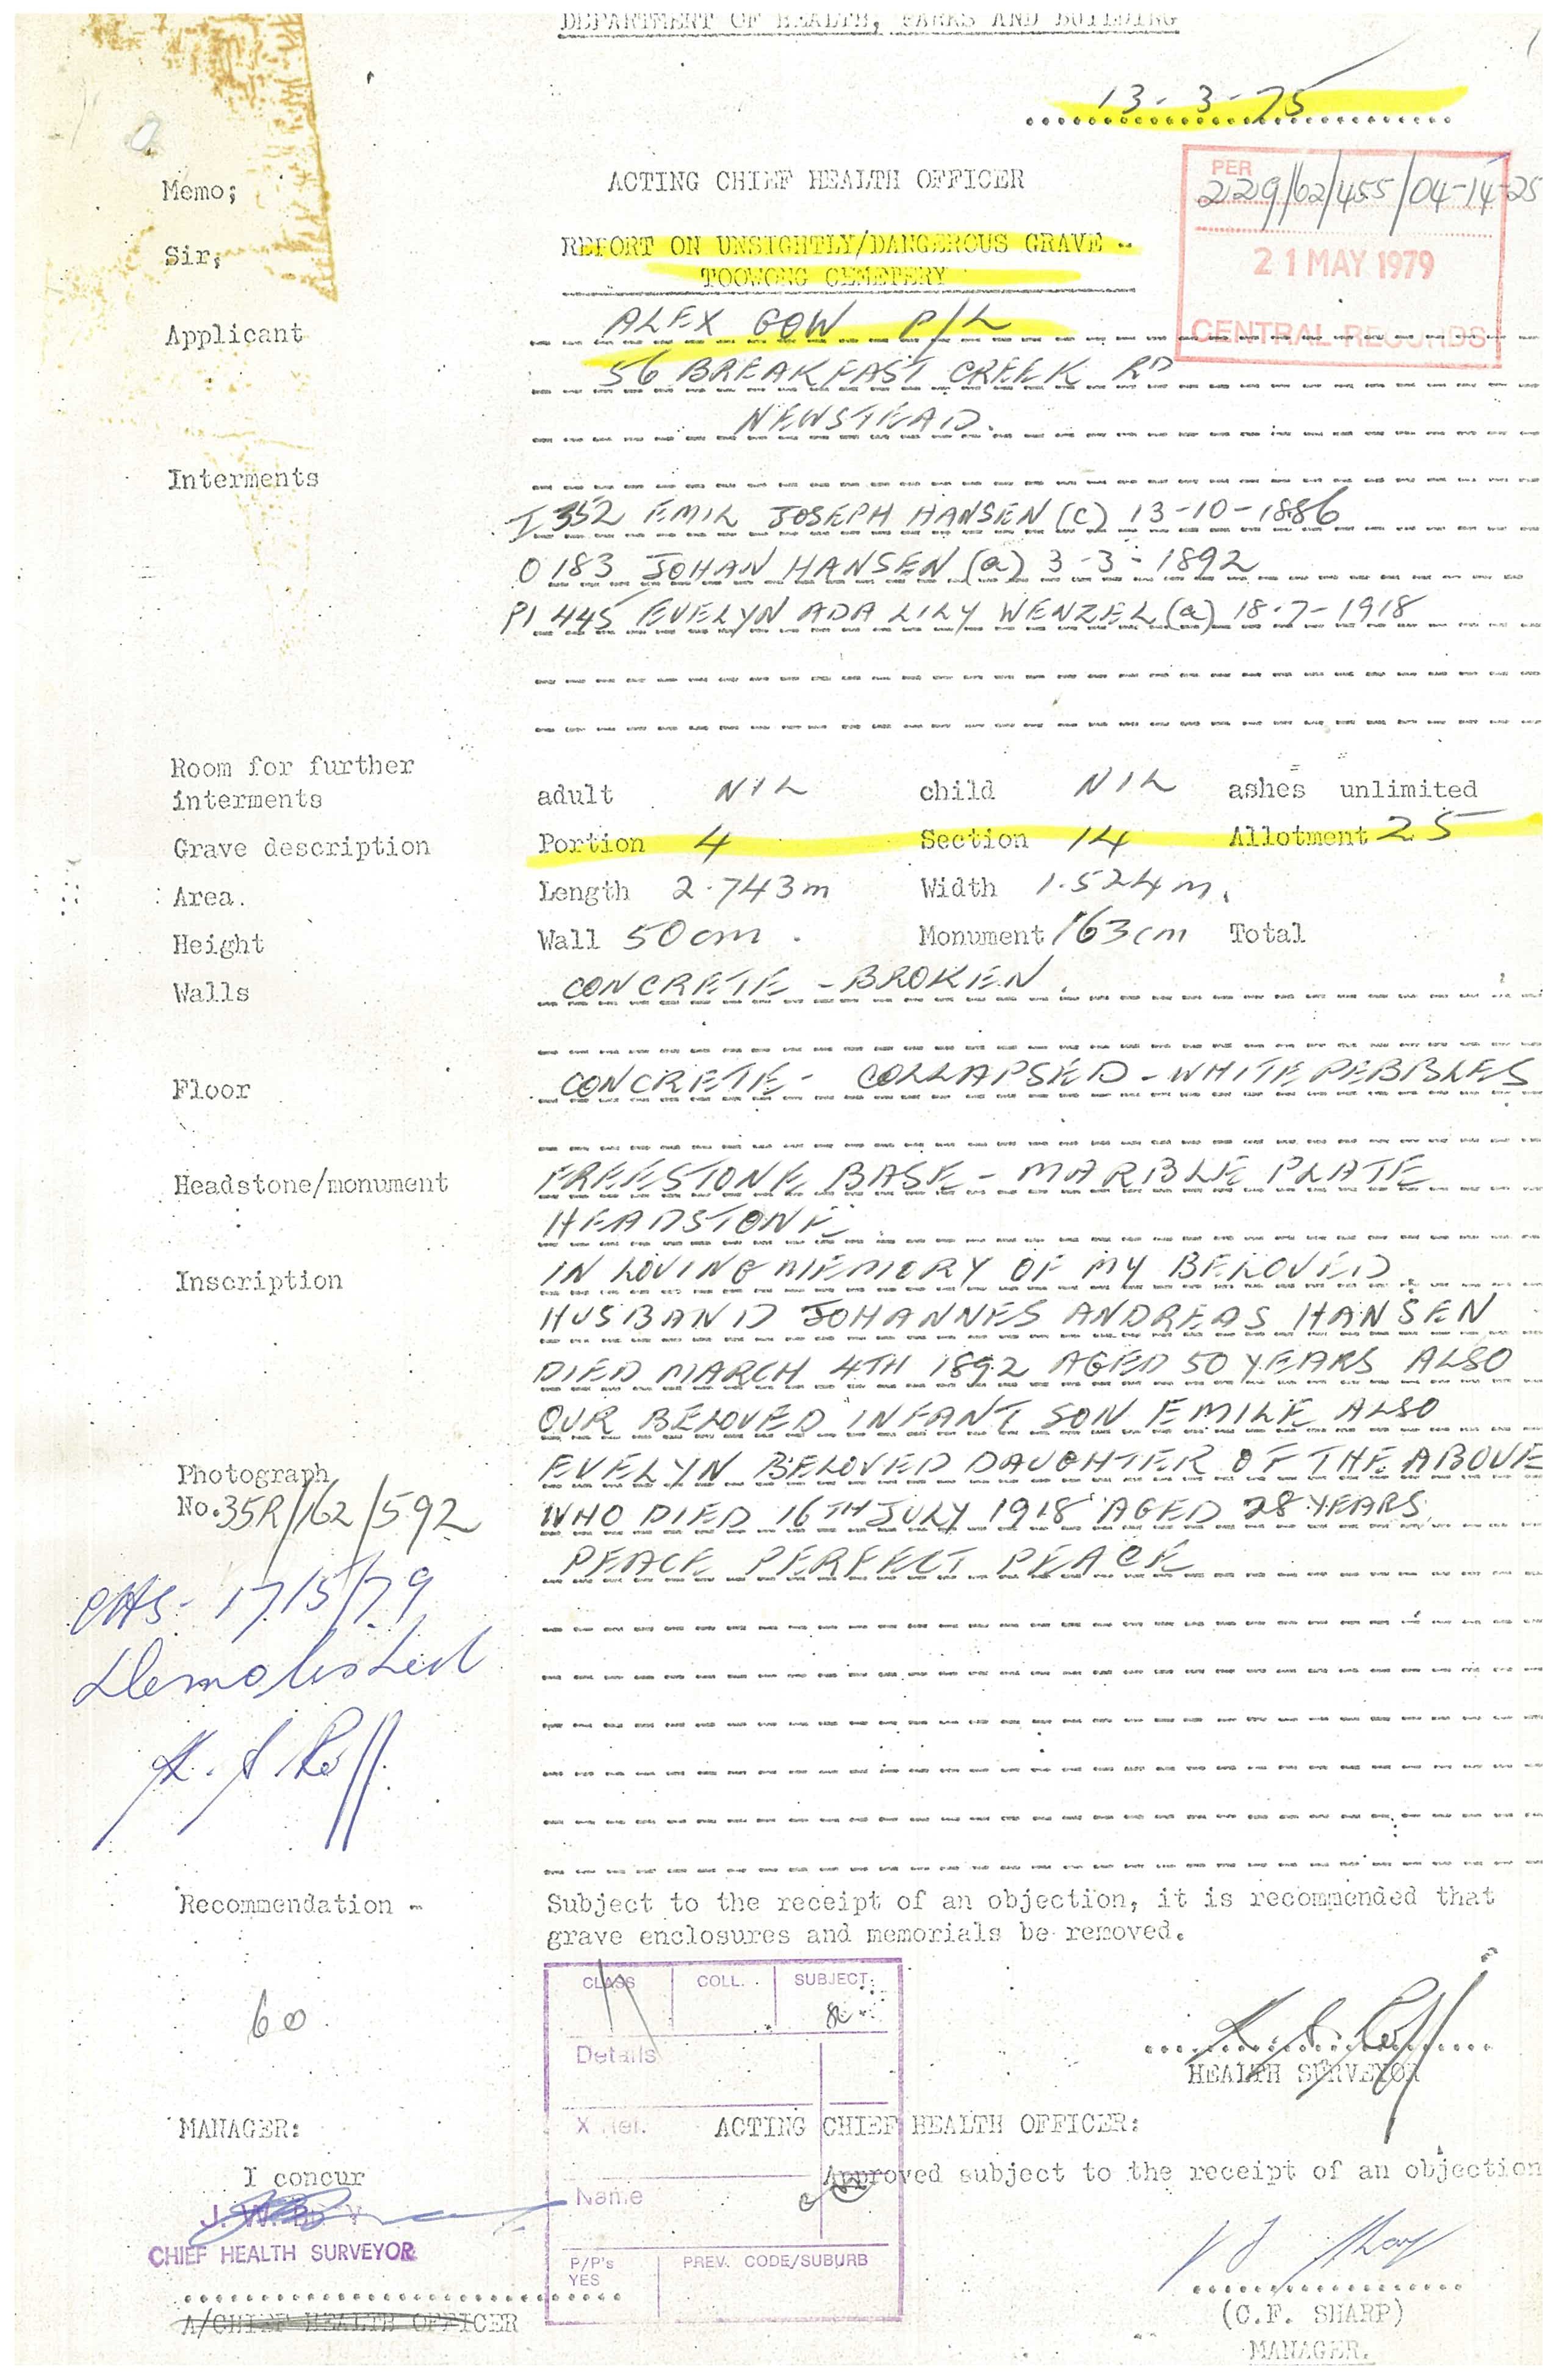 DEPARTMENT OF HEALTH, PARKS AND BUILDING
13-3-75
Memo;
ACTING CHIEF HEALTH OFFICER
PER
229/62/455/04-14-25
21 MAY 1979
CENTRAL RECORDS
Sir,
REPORT ON UNSIGHTLY/DANGEROUS GRAVE -
TOOWONG CEMETERY
Applicant
ALEX GOW P/L
56 BREAKFAST CREEK RD
NEWSTEAD.
Interments
I 352 EMIL JOSEPH HANSEN (C) 13-10-1886
O 183 JOHAN HANSEN (a) 3-3-1892
P1 445 EVELYN ADA LILY WENZEL (a) 18-7-1918
Room for further
interments adult NIL child NIL ashes unlimited
Grave description Portion 4 Section 14 Allotment 25
Area. Length 2.743m Width 1.524m.
Height Wall 50cm. Monument 163cm Total
Walls CONCRETE - BROKEN.
Floor CONCRETE - COLLAPSED - WHITE PEBBLES
Headstone/monument FREESTONE BASE - MARBLE PLATE
HEADSTONE.
Inscription IN LOVING MEMORY OF MY BELOVED
HUSBAND JOHANNES ANDREAS HANSEN
DIED MARCH 4TH 1892 AGED 50 YEARS ALSO
OUR BELOVED INFANT SON EMILE ALSO
Photograph EVELYN BELOVED DAUGHTER OF THE ABOVE
No. 35R/162/592 WHO DIED 16TH JULY 1918 AGED 28 YEARS
PEACE PERFECT PEACE
17/5/79
Demolished
Recommendation - Subject to the receipt of an objection, it is recommended that
grave enclosures and memorials be removed.
CLASS COLL. SUBJECT
60
Details
HEALTH SURVEYOR
X Ref.
MANAGER: ACTING CHIEF HEALTH OFFICER:
I concur Approved subject to the receipt of an objection
Name
CHIEF HEALTH SURVEYOR
P/P's PREV. CODE/SUBURB
YES
A/CHIEF HEALTH OFFICER
(C.F. SHARP)
MANAGER.